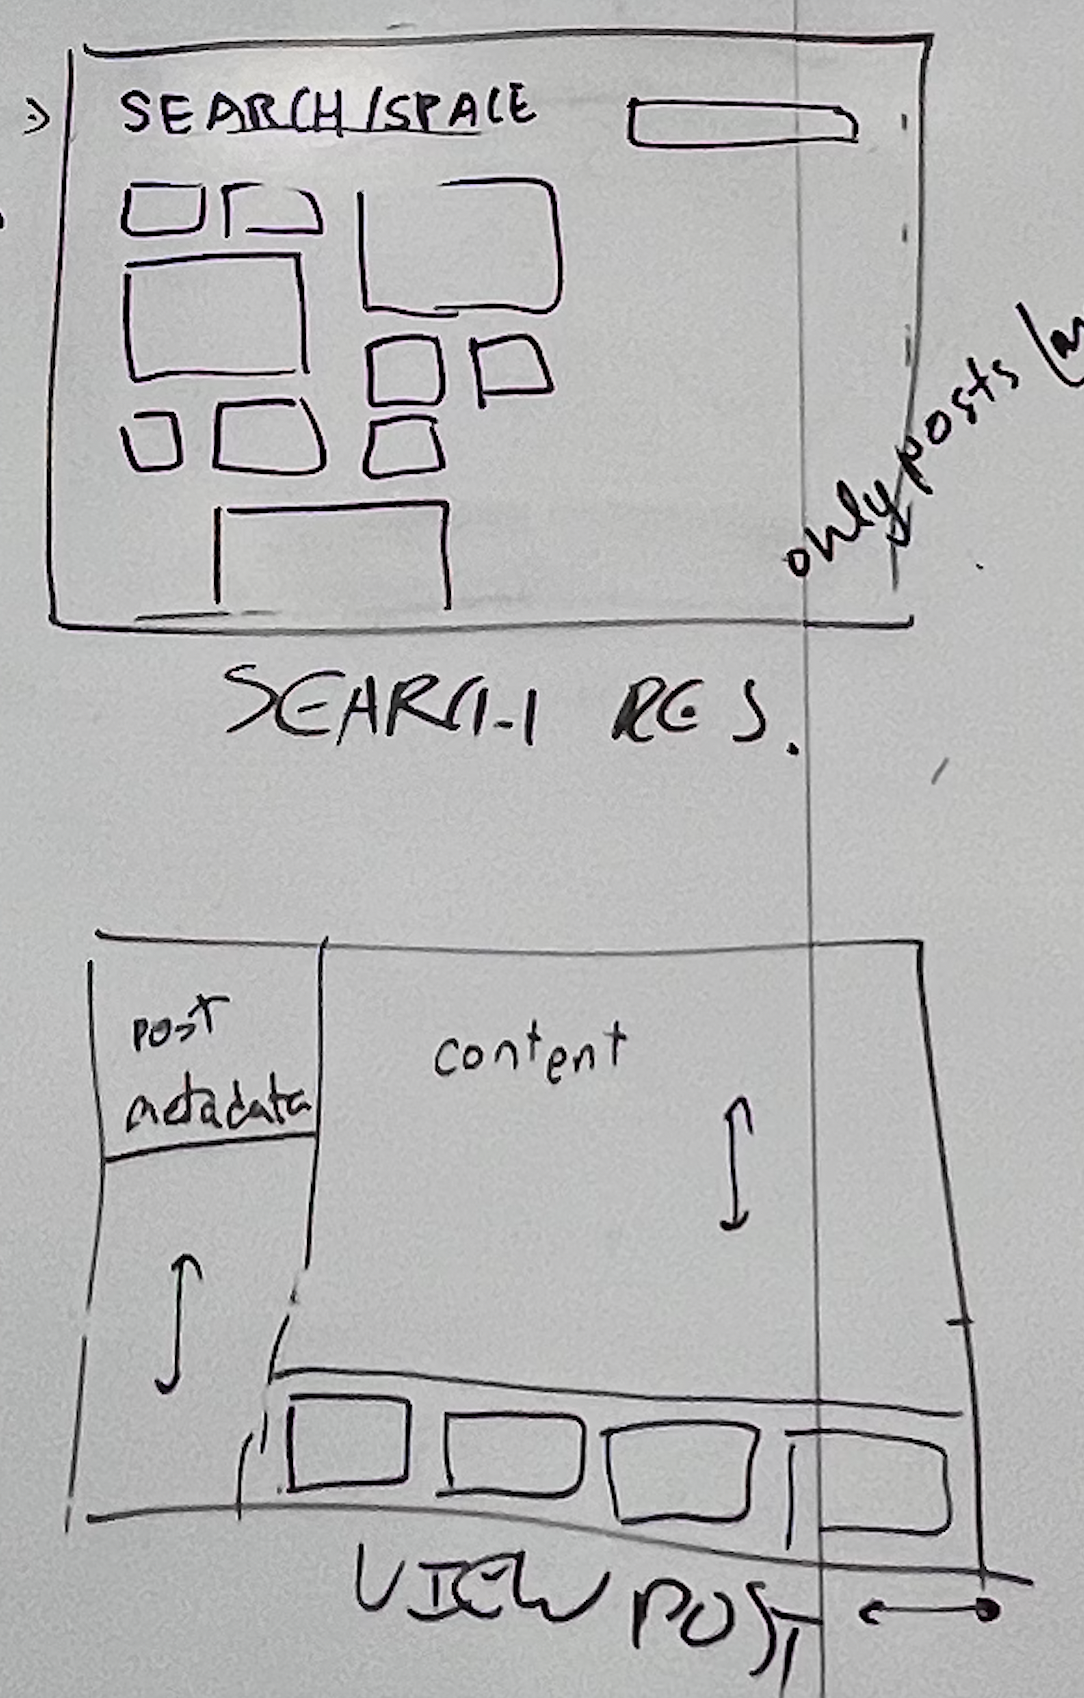 SEARCH/SPACE
only posts
SEARCH RES.
post
metadata
content
VIEW POST